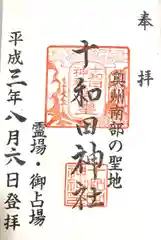 奉拝
奥州南部の聖地
十和田神社
霊場・御占場
平成三年八月六日登拝